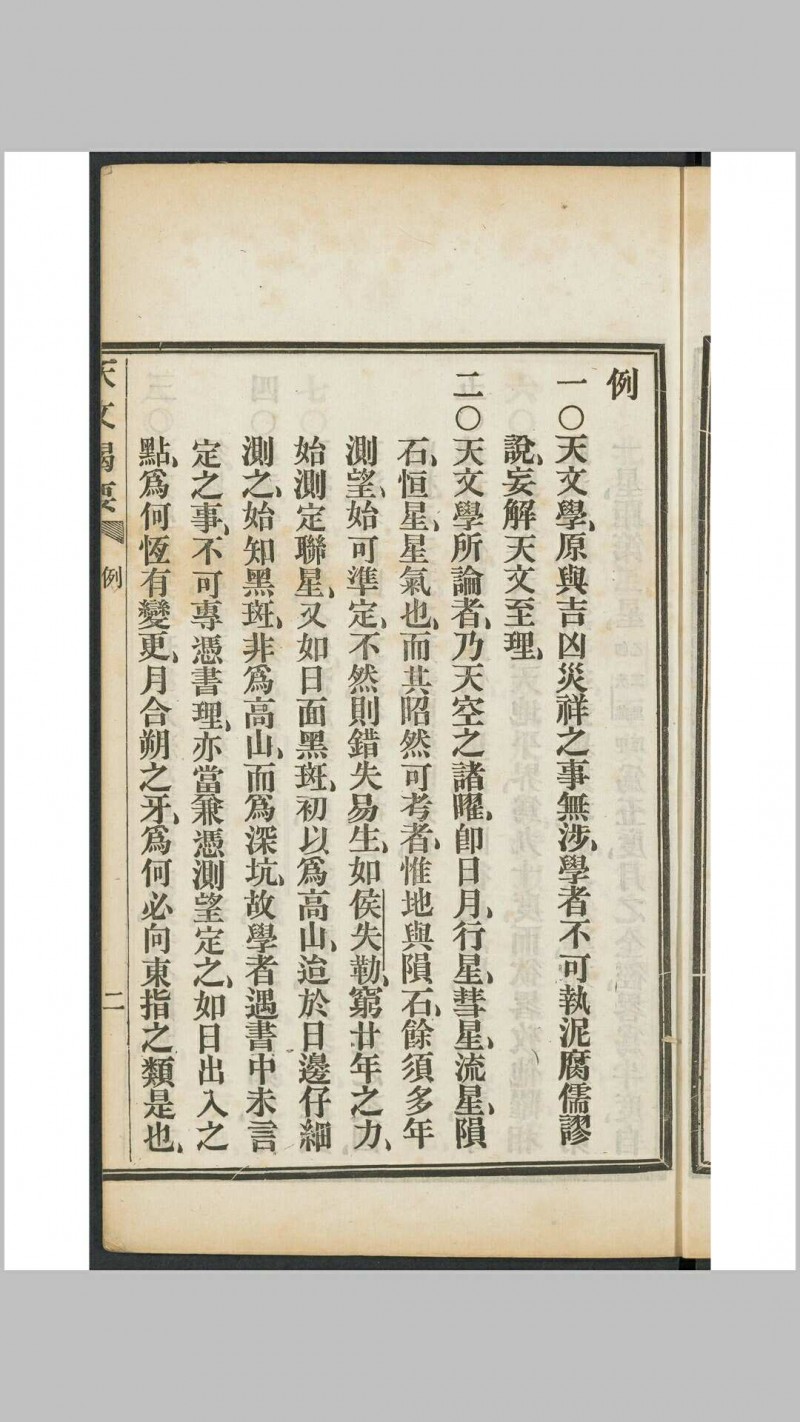 例
一〇天文學、原與吉凶災祥之事無涉、學者不可執泥腐儒謬
說、妄解天文至理、
二〇天文學所論者、乃天空之諸曜、卽日月、行星、彗星、流星、隕
石、恒星、星氣也、而其昭然可考者、惟地與隕石、餘須多年
測望、始可準定、不然則錯失易生、如侯失勒、窮廿年之力、
始測定聯星、又如日面黑斑、初以爲高山、迨於日邊仔細
測之、始知黑斑、非爲高山、而爲深坑、故學者遇書中未言
定之事、不可專憑書理、亦當兼憑測望定之、如日出入之
點、爲何恆有變更、月合朔之牙、爲何必向東指之類是也、
天文揭要 例 二